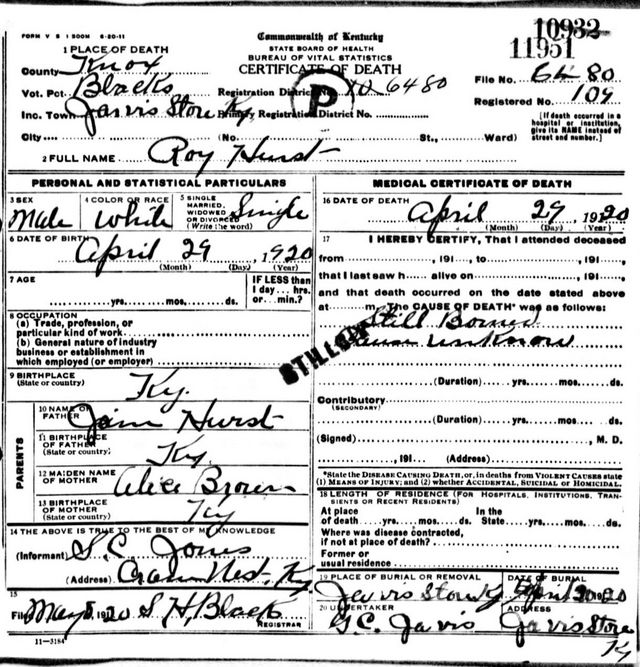 FORM V S 1 500M 6-20-11
Commonwealth of Kentucky
10932
11951
STATE BOARD OF HEALTH
BUREAU OF VITAL STATISTICS
CERTIFICATE OF DEATH
1 PLACE OF DEATH
County Knox
Vot. Pct. Blacks
Registration District No. 6480
File No. 6480
Inc. Town Jarvis Store Ky.
Primary Registration District No.
P
Registered No. 109
City (No. St., Ward)
[If death occurred in a hospital or institution, give its NAME instead of street and number.]
2 FULL NAME Roy Hurst
PERSONAL AND STATISTICAL PARTICULARS
3 SEX Male
4 COLOR OR RACE White
5 SINGLE MARRIED, WIDOWED OR DIVORCED (Write the word) Single
6 DATE OF BIRTH April 29, 1920
(Month) (Day) (Year)
7 AGE
yrs. mos. ds.
IF LESS than 1 day... hrs. or... min.?
8 OCCUPATION
(a) Trade, profession, or particular kind of work
(b) General nature of industry business or establishment in which employed (or employer)
9 BIRTHPLACE (State or country) Ky.
PARENTS
10 NAME OF FATHER Jim Hurst
11 BIRTHPLACE OF FATHER (State or country) Ky.
12 MAIDEN NAME OF MOTHER Alice Brown
13 BIRTHPLACE OF MOTHER (State or country) Ky
14 THE ABOVE IS TRUE TO THE BEST OF MY KNOWLEDGE
(Informant) S. C. Jones
(Address) Crain Nest, Ky
15
Filed May 5 1920 S. H. Black
REGISTRAR
11-3184
MEDICAL CERTIFICATE OF DEATH
16 DATE OF DEATH April 29, 1920
(Month) (Day) (Year)
17 I HEREBY CERTIFY, That I attended deceased
from , 191 , to , 191 ,
that I last saw h alive on , 191 ,
and that death occurred on the date stated above
at m. The CAUSE OF DEATH* was as follows:
Still Borned
Cause unknow
(Duration) yrs. mos. ds.
Contributory
(SECONDARY)
(Duration) yrs. mos. ds.
(Signed) , M. D.
, 191 (Address)
*State the DISEASE CAUSING DEATH, or, in deaths from VIOLENT CAUSES state (1) MEANS OF INJURY; and (2) whether ACCIDENTAL, SUICIDAL or HOMICIDAL.
18 LENGTH OF RESIDENCE (FOR HOSPITALS, INSTITUTIONS, TRANSIENTS OR RECENT RESIDENTS)
At place of death yrs. mos. ds. In the State yrs. mos. ds.
Where was disease contracted, if not at place of death?
Former or usual residence
19 PLACE OF BURIAL OR REMOVAL
DATE OF BURIAL
Jarvis Store Ky April 30 1920
20 UNDERTAKER
ADDRESS
G. C. Jarvis Jarvis Store
Ky